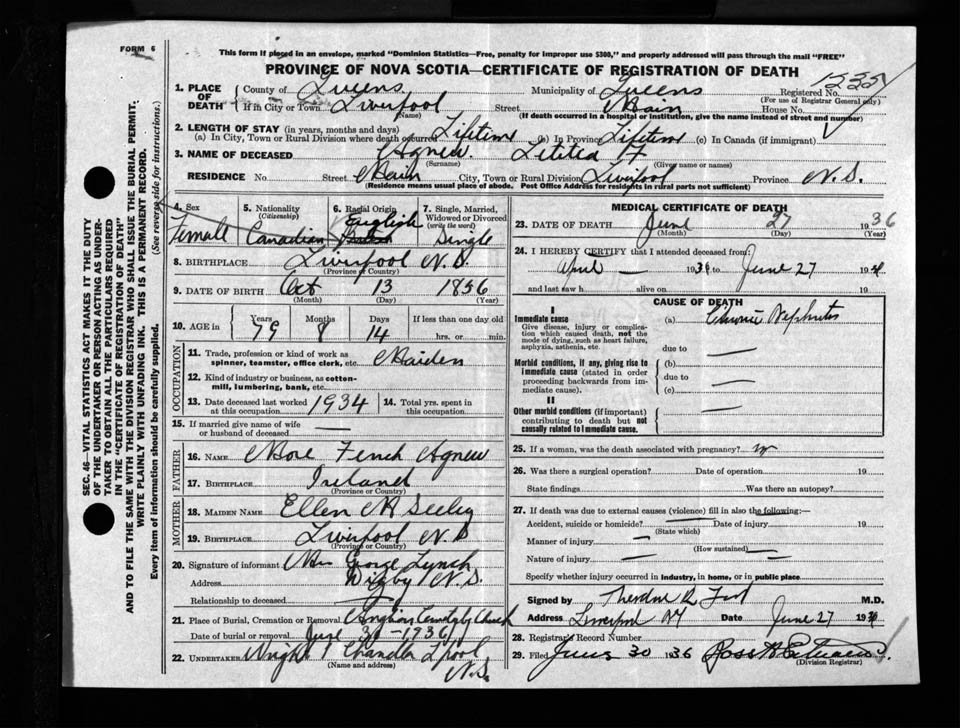 FORM 6
This form if placed in an envelope, marked "Dominion Statistics—Free, penalty for improper use $300," and properly addressed will pass through the mail "FREE"
PROVINCE OF NOVA SCOTIA—CERTIFICATE OF REGISTRATION OF DEATH
1. PLACE OF DEATH { County of Queens Municipality of Queens Registered No.
(For use of Registrar General only)
If in City or Town Liverpool Street Main House No.
(Name) (If death occurred in a hospital or institution, give the name instead of street and number)
2. LENGTH OF STAY (in years, months and days)
(a) In City, Town or Rural Division where death occurred Lifetime (b) In Province Lifetime (c) In Canada (if immigrant)
3. NAME OF DECEASED Agnew. Letitia H
(Surname) (Given name or names)
RESIDENCE No. Street Main City, Town or Rural Division Liverpool Province N.S.
(Residence means usual place of abode. Post Office Address for residents in rural parts not sufficient)
4. Sex 5. Nationality (Citizenship) 6. Racial Origin 7. Single, Married, Widowed or Divorced (write the word)
Female Canadian English Single
8. BIRTHPLACE Liverpool N.S.
(Province or Country)
9. DATE OF BIRTH Oct 13 1856
(Month) (Day) (Year)
10. AGE in { Years Months Days If less than one day old
79 8 14 hrs. or min.
OCCUPATION
11. Trade, profession or kind of work as spinner, teamster, office clerk, etc. Maiden
12. Kind of industry or business, as cotton-mill, lumbering, bank, etc.
13. Date deceased last worked at this occupation 1934 14. Total yrs. spent in this occupation
15. If married give name of wife or husband of deceased —
FATHER
16. NAME Finch Agnew
17. BIRTHPLACE Ireland
(Province or Country)
MOTHER
18. MAIDEN NAME Ellen M Seeley
19. BIRTHPLACE Liverpool N.S
(Province or Country)
20. Signature of informant Mrs George Lynch
Address Digby N.S.
Relationship to deceased
21. Place of Burial, Cremation or Removal Church
Date of burial or removal June 30 - 1936
22. UNDERTAKER Wright Chandler L'pool
(Name and address) N.S.
MEDICAL CERTIFICATE OF DEATH
23. DATE OF DEATH June 27 1936
(Month) (Day) (Year)
24. I HEREBY CERTIFY that I attended deceased from:
April — 19 to June 27 19
and last saw h alive on 19
CAUSE OF DEATH
I
Immediate cause (a) Chronic Nephritis
Give disease, injury or complication which caused death, not the mode of dying, such as heart failure, asphyxia, asthenia, etc.
due to —
Morbid conditions, if any, giving rise to immediate cause (stated in order proceeding backwards from immediate cause).
(b)
due to —
(c)
II
Other morbid conditions (if important) contributing to death but not causally related to immediate cause.
25. If a woman, was the death associated with pregnancy? no
26. Was there a surgical operation? Date of operation 19
State findings Was there an autopsy?
27. If death was due to external causes (violence) fill in also the following:—
Accident, suicide or homicide? Date of injury 19
(State which)
Manner of injury —
(How sustained)
Nature of injury —
Specify whether injury occurred in industry, in home, or in public place
Signed by Theodore R Ford M.D.
Address Liverpool NS Date June 27 19
28. Registrar's Record Number
29. Filed June 30 1936 Ross
(Division Registrar)
SEC. 46—VITAL STATISTICS ACT MAKES IT THE DUTY
OF THE UNDERTAKER OR PERSON ACTING AS UNDER-
TAKER TO OBTAIN ALL THE PARTICULARS REQUIRED
IN THE "CERTIFICATE OF REGISTRATION OF DEATH"
AND TO FILE THE SAME WITH THE DIVISION REGISTRAR WHO SHALL ISSUE THE BURIAL PERMIT.
WRITE PLAINLY WITH UNFADING INK. THIS IS A PERMANENT RECORD.
Every item of information should be carefully supplied. (See reverse side for instructions.)